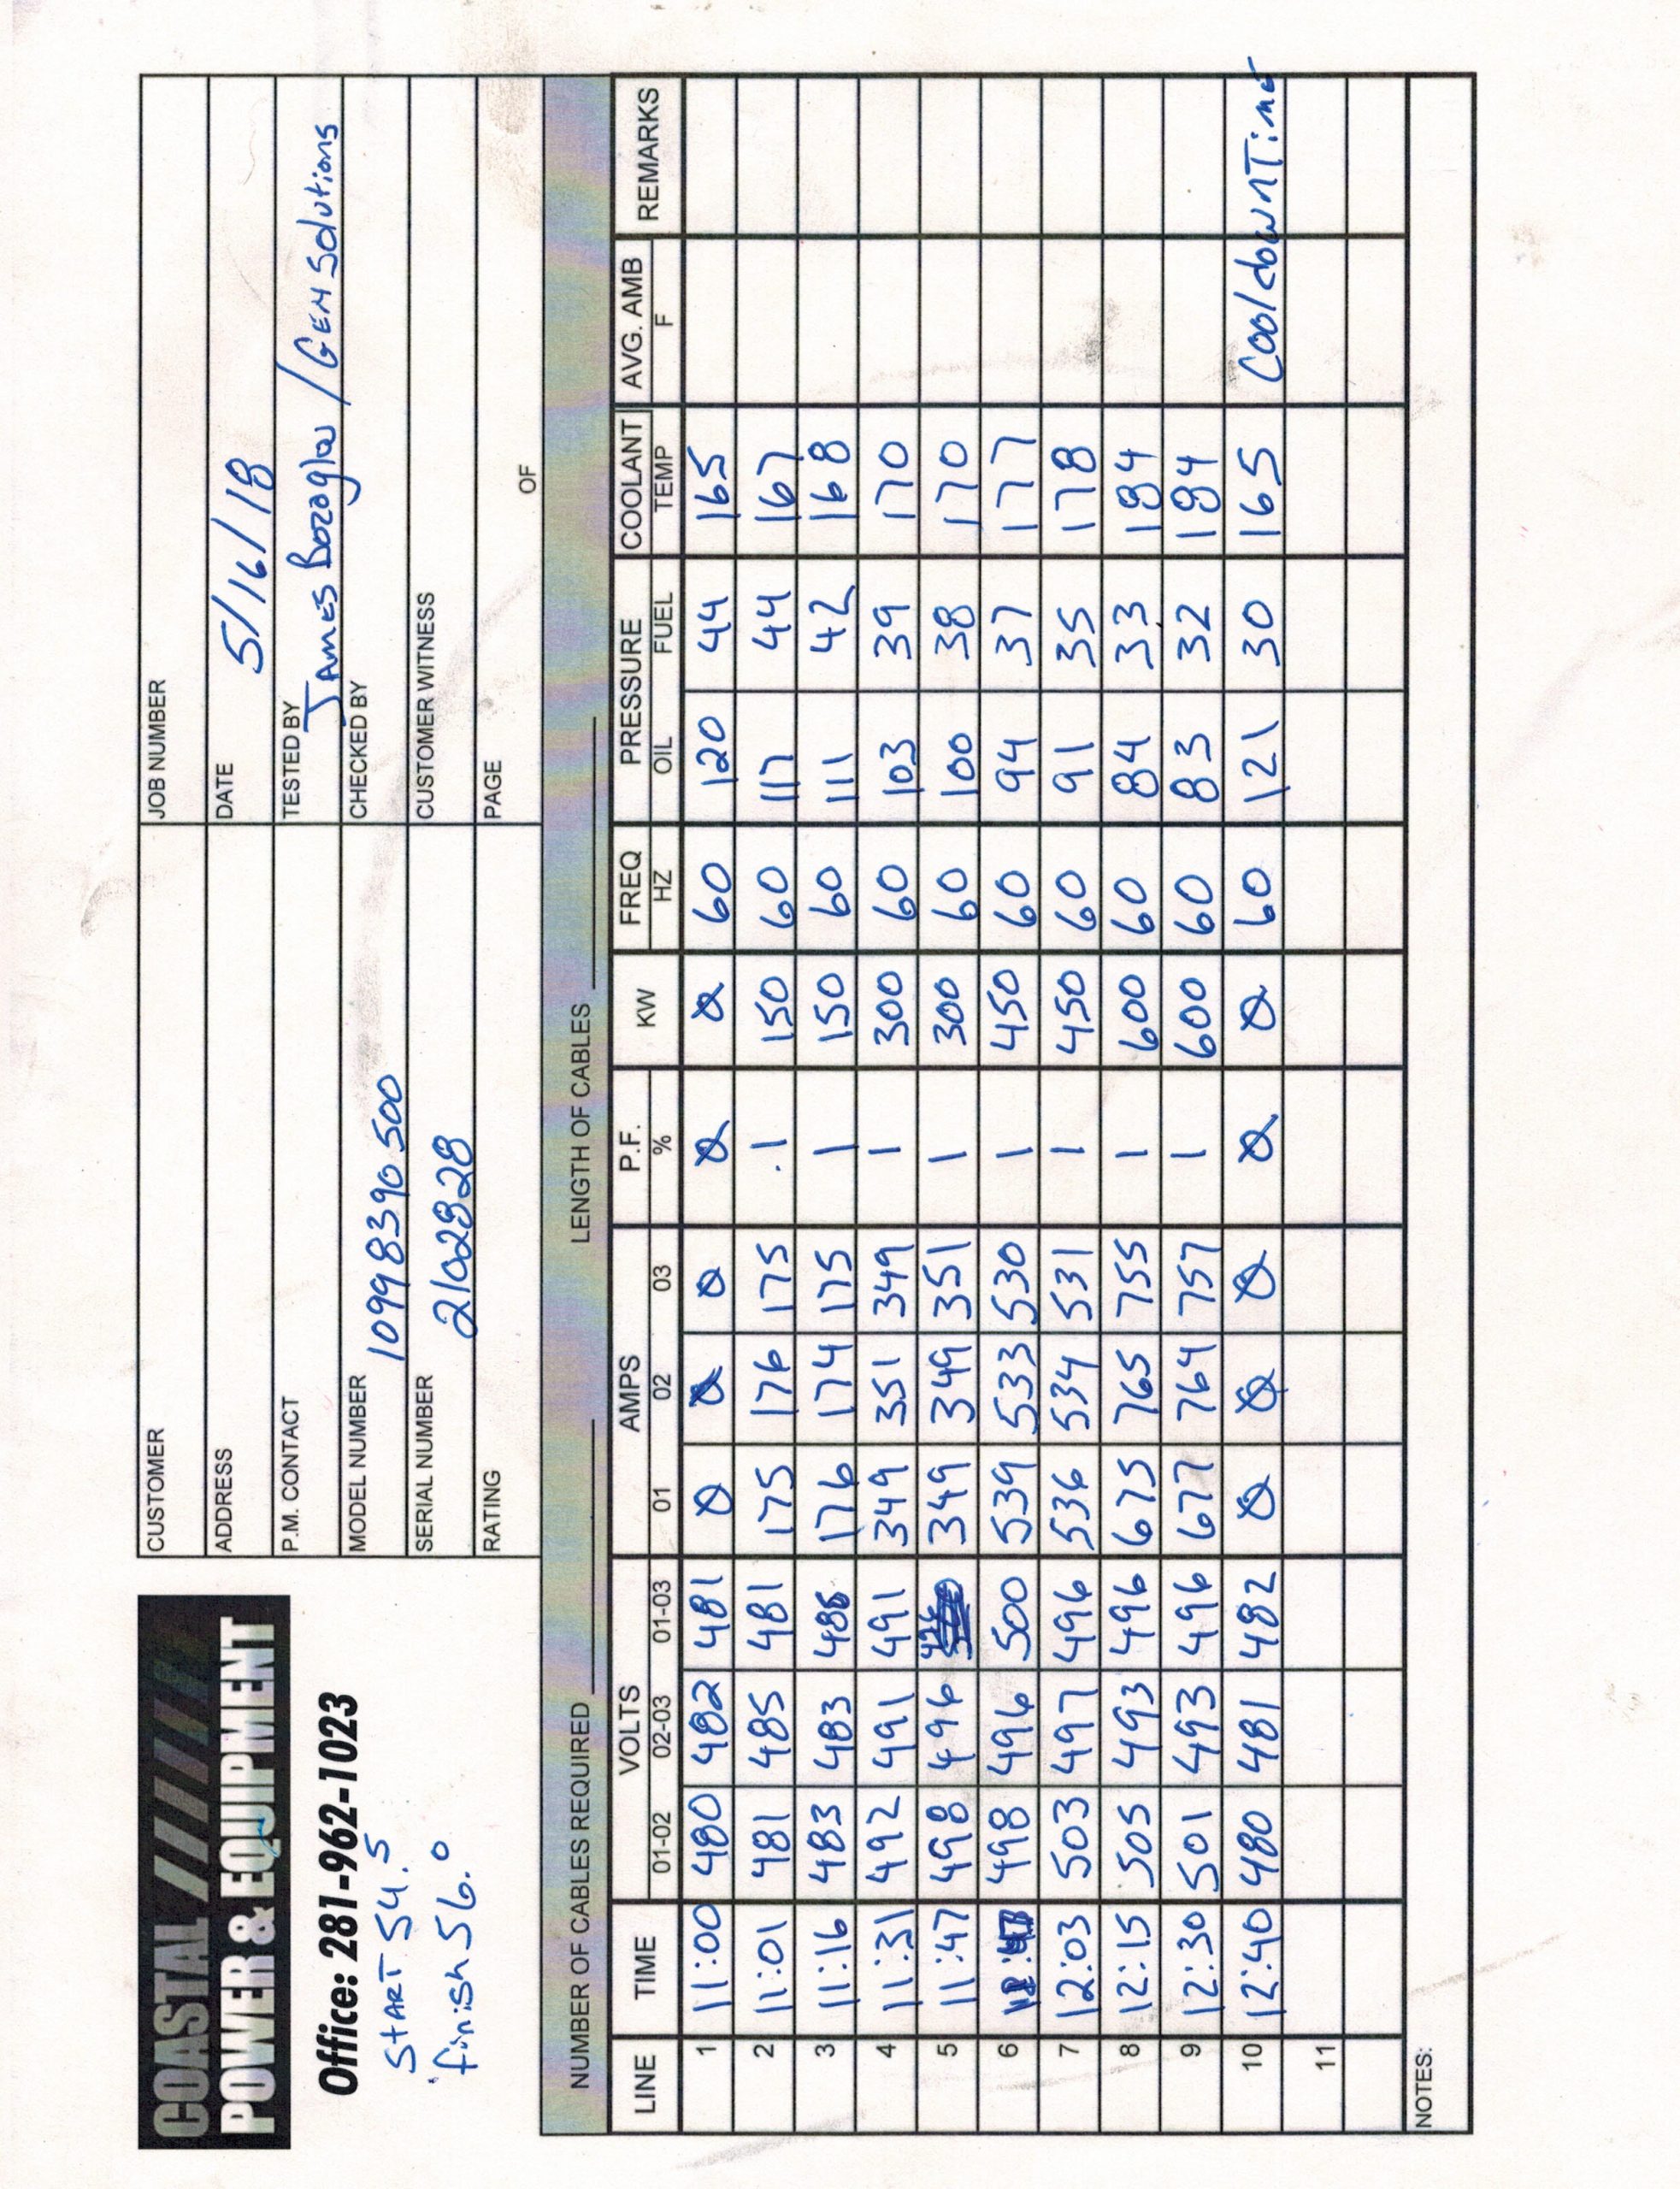 COASTAL
POWER & EQUIPMENT
Office: 281-962-1023
START 54.5
finish 56.0
CUSTOMER
JOB NUMBER
ADDRESS
DATE 5/16/18
P.M. CONTACT
TESTED BY James Bozoglw / GEN Solutions
MODEL NUMBER 10998390500
CHECKED BY
SERIAL NUMBER 2102828
CUSTOMER WITNESS
RATING
PAGE OF
NUMBER OF CABLES REQUIRED LENGTH OF CABLES
LINE TIME VOLTS AMPS P.F. KW FREQ PRESSURE COOLANT AVG. AMB REMARKS
01-02 02-03 01-03 01 02 03 % HZ OIL FUEL TEMP F
1 11:00 480 482 481 0 0 0 0 0 60 120 44 165
2 11:01 481 485 481 175 176 175 .1 150 60 117 44 167
3 11:16 483 483 486 176 174 175 1 150 60 111 42 168
4 11:31 492 491 491 349 351 349 1 300 60 103 39 170
5 11:47 498 496 349 349 351 1 300 60 100 38 170
6 498 496 500 539 533 530 1 450 60 94 37 177
7 12:03 503 497 496 536 534 531 1 450 60 91 35 178
8 12:15 505 493 496 675 765 755 1 600 60 84 33 184
9 12:30 501 493 496 677 764 757 1 600 60 83 32 184
10 12:40 480 481 482 0 0 0 0 0 60 121 30 165 Cooldown Time
11
NOTES: